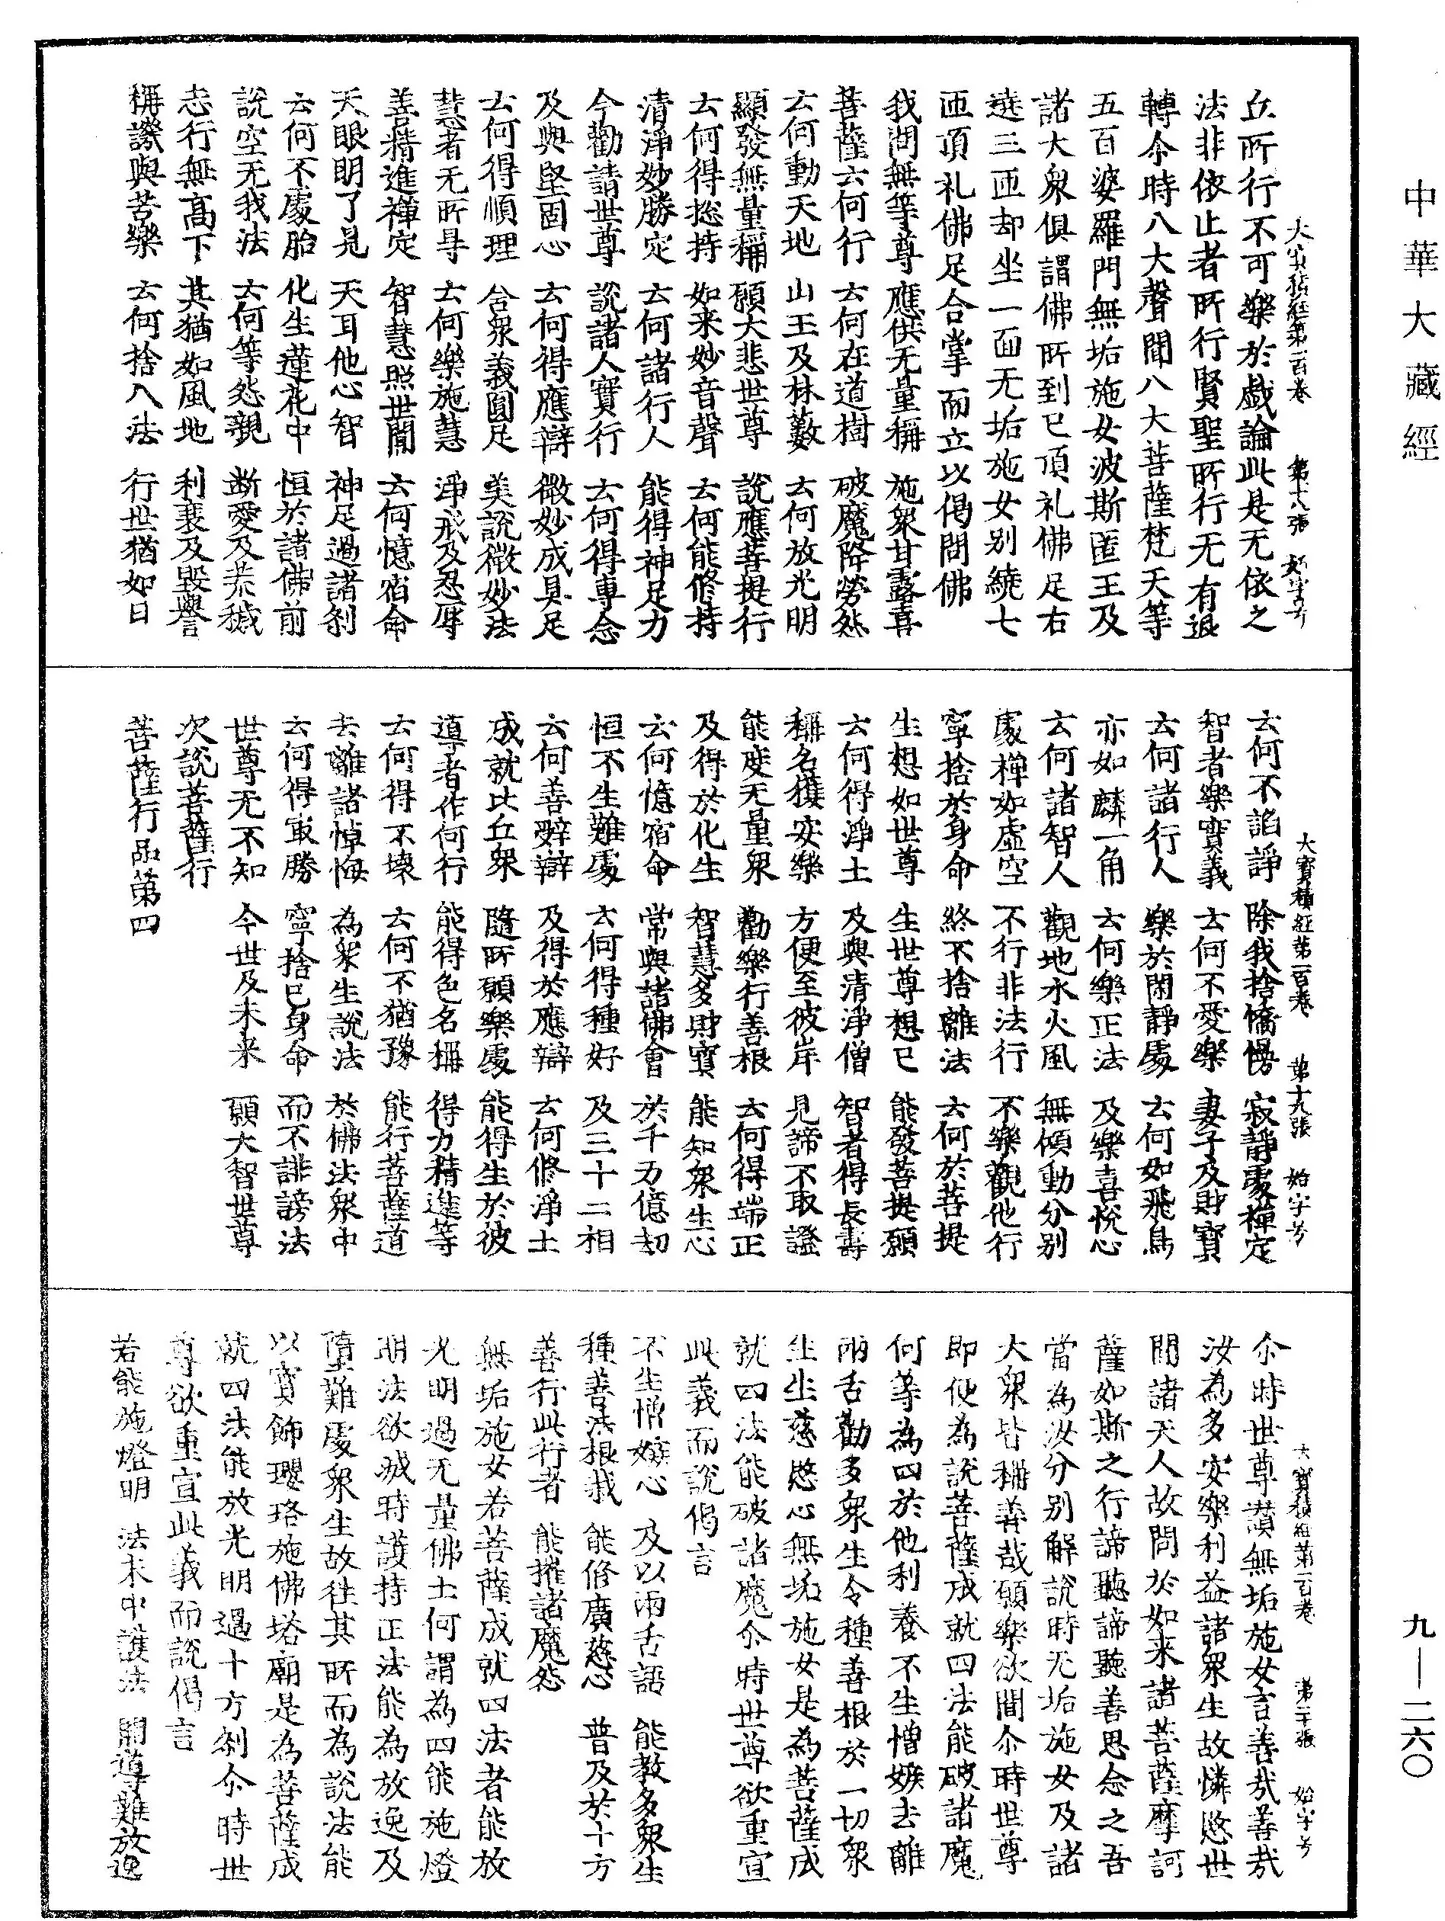 中華大藏經
大寶積經第一百卷 第十八張 始字号
丘所行不可樂於戲論此是无依之
法非依止者所行賢聖所行无有退
轉尒時八大聲聞八大菩薩梵天等
五百婆羅門無垢施女波斯匿王及
諸大衆俱謂佛所到已頂礼佛足右
遶三匝却坐一面无垢施女别繞七
匝頂礼佛足合掌而立以偈問佛
我問無等尊 應供无量稱 施衆甘露喜
菩薩云何行 云何在道樹 破魔降勞然
云何動天地 山王及林藪 云何放光明
顯發無量稱 願大悲世尊 說應菩提行
云何得捴持 如来妙音聲 云何能修持
清淨妙勝定 云何諸行人 能得神足力
今勸請世尊 說諸人寶行 云何得專念
及與堅固心 云何得應辯 微妙成具足
云何得順理 含衆義圓足 美說微妙法
慧者无所㝵 云何樂施慧 淨戒及忍辱
善精進禪定 智慧照世間 云何憶宿命
天眼明了見 天耳他心智 神足過諸刹
云何不處胎 化生蓮花中 恒於諸佛前
說空无我法 云何等怨親 断愛及恭穢
志行無高下 其猶如風地 利衰及毀譽
稱譏與苦樂 云何捨八法 行世猶如日
大寶積經第一百卷 第十九張 始字号
云何不諂諍 除我捨憍慢 寂靜處禪定
智者樂寶義 云何不愛樂 妻子及財寶
云何諸行人 樂於閑靜處 云何如飛鳥
亦如麟一角 云何樂正法 及樂喜悅心
云何諸智人 觀地水火風 無傾動分别
處禪如虛空 不行非法行 不樂觀他行
寧捨於身命 終不捨離法 云何於菩提
生想如世尊 生世尊想已 能發菩提願
云何得淨土 及與清淨僧 智者得長壽
稱名獲安樂 方便至彼岸 見諦不取證
能度无量衆 勸樂行善根 云何得端正
及得於化生 智慧多財寶 能知衆生心
云何憶宿命 常與諸佛會 於千万億劫
恒不生難處 云何得種好 及三十二相
云何善辭辯 及得於應辯 云何修淨土
成就比丘衆 隨所願樂處 能得生於彼
導者作何行 能得色名稱 得力精進等
云何得不壞 云何不猶豫 能行菩薩道
去離諸悼悔 為衆生說法 於佛法衆中
云何得㝡勝 寧捨已身命 而不誹謗法
世尊无不知 今世及未来 願大智世尊
次說菩薩行
菩薩行品第四
大寶積經第一百卷 第二十張 始字号
尒時世尊讚無垢施女言善㢤善㢤
汝為多安樂利益諸衆生故憐愍世
間諸天人故問於如来諸菩薩摩訶
薩如斯之行諦聽諦聽善思念之吾
當為汝分别解說時无垢施女及諸
大衆皆稱善哉願樂欲聞尒時世尊
即便為說菩薩成就四法能破諸魔
何等為四於他利養不生憎嫉去離
兩舌勸多衆生令種善根於一切衆
生生慈愍心無垢施女是為菩薩成
就四法能破諸魔尒時世尊欲重宣
此義而說偈言
不生憎嫉心 及以兩舌語 能教多衆生
種善法根栽 能修廣慈心 普及於十方
善行此行者 能摧諸魔怨
無垢施女若菩薩成就四法者能放
光明過无量佛土何謂為四能施燈
明法欲滅時護持正法能為放逸及
墮難處衆生故往其所而為說法能
以寶飾瓔珞施佛塔廟是為菩薩成
就四法能放光明過十方刹尒時世
尊欲重宣此義而說偈言
若能施燈明 法末中護法 開導難放逸
九—二六〇